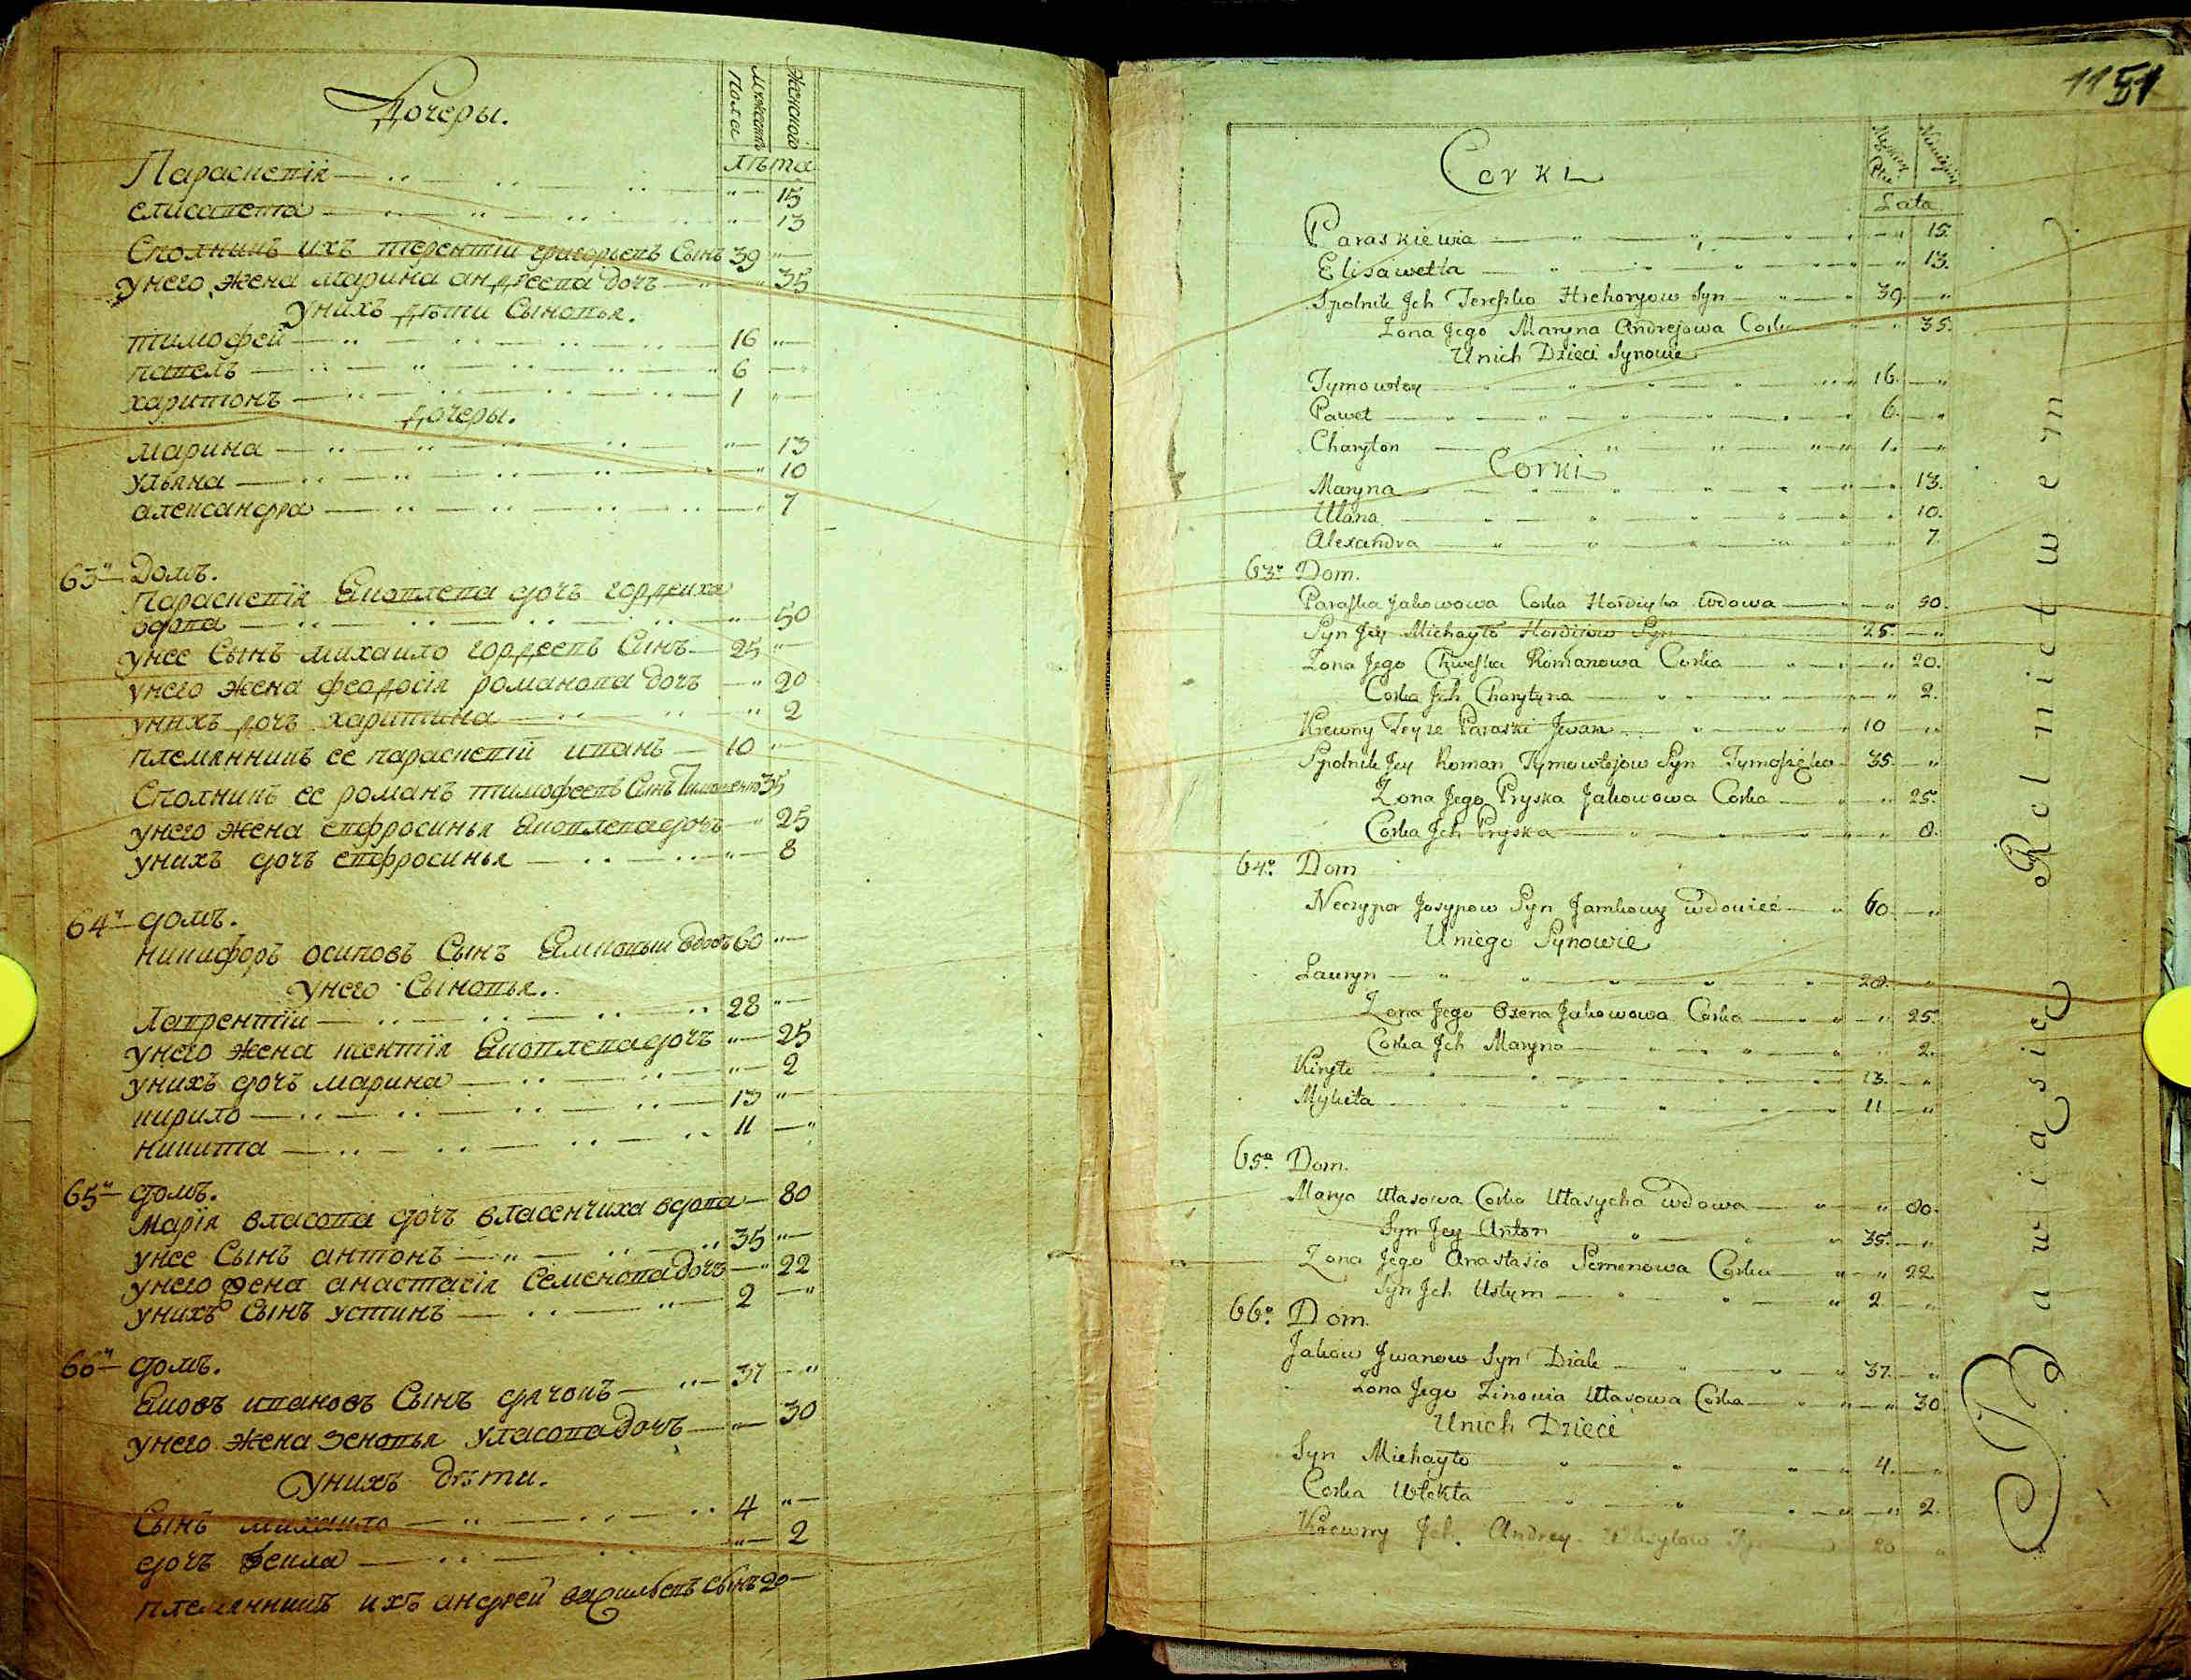 Дочеры.
Мужеска Пола
Женского
лѣта
Параскевія 15
елисавета 13
Сполникъ ихъ терентіи григорьевъ Сынъ 39
унего жена марина андреева дочь 35
унихъ дѣти Сыновья.
тимофеи 16
павелъ 6
харитонъ 1
дочеры.
марина 13
ульяна 10
александра 7
63й Домъ.
Параскевія Яковлева дочь гордеиха
вдова 50
унее Сынъ михаило гордеевъ Сынъ 25
унего жена феодосія романова дочь 20
унихъ дочь харитина 2
племянникъ ее параскевіи иванъ 10
Сполникъ ее романъ тимофеевъ Сынъ 35
унего жена евфросинья Яковлева дочь 25
унихъ дочь евфросинья 8
64й домъ.
никифоръ осиповъ Сынъ вдовъ 60
унего Сыновья.
лаврентіи 28
унего жена ксенія Яковлева дочь 25
унихъ дочь марина 2
кирило 13
никита 11
65й домъ.
Марія власова дочь власенчиха вдова 80
унее Сынъ антонъ 35
унего жена анастасія Семенова дочь 22
унихъ Сынъ устинъ 2
66й домъ.
Яковъ ивановъ Сынъ дячокъ 37
унего жена зеновья уласова дочь 30
унихъ дѣти.
Сынъ михаило 4
дочь фекла 2
племянникъ ихъ андреи васильевъ Сынъ 20
1151
Corki
Męzkiey Płci
Lata
Paraskiewia 15.
Elisawetta 13.
Spolnik Jch Tereszko Hrehoryow Syn 39.
Zona Jego Maryna Andrejowa Corka 35.
Unich Dzieci Synowie
Tymowtey 16.
Paweł 6.
Charyton 1.
Corki
Maryna 13.
Ulana 10.
Alexandra 7.
63o Dom.
Paraska Jakowowa Corka Hordiycha Wdowa 50.
Syn Jey Michayło Hordijow Syn 25.
Zona Jego Chweska Romanowa Corka 20.
Corka Jch Charytyna 2.
Krewny Teyze Paraski Jwan 10
Spolnik Jey Roman Tymowtejow Syn 35.
Zona Jego Pryska Jakowowa Corka 25.
Corka Jch Pryska 8.
64o Dom
Neczypor Josypow Syn Jamkowy Wdowiec 60.
Uniego Synowie
Lauryn 28.
Zona Jego Oxena Jakowowa Corka 25.
Corka Jch Maryna 2.
Kiryło 13.
Mykita 11
65o Dom.
Marya Ułasowa Corka Ułasycha Wdowa 80.
Syn Jey Anton 35.
Zona Jego Anastasia Semenowa Corka 22
Syn Jch Ustym 2
66o Dom.
Jakow Jwanow Syn Diak 37.
Zona Jego Zinowia Ułasowa Corka 30.
Unich Dzieci
Syn Michayło 4.
Corka Wtekla 2.
Krewny Jch Andrey Wasylow Syn 20
Bawiąsię Rolnictwem